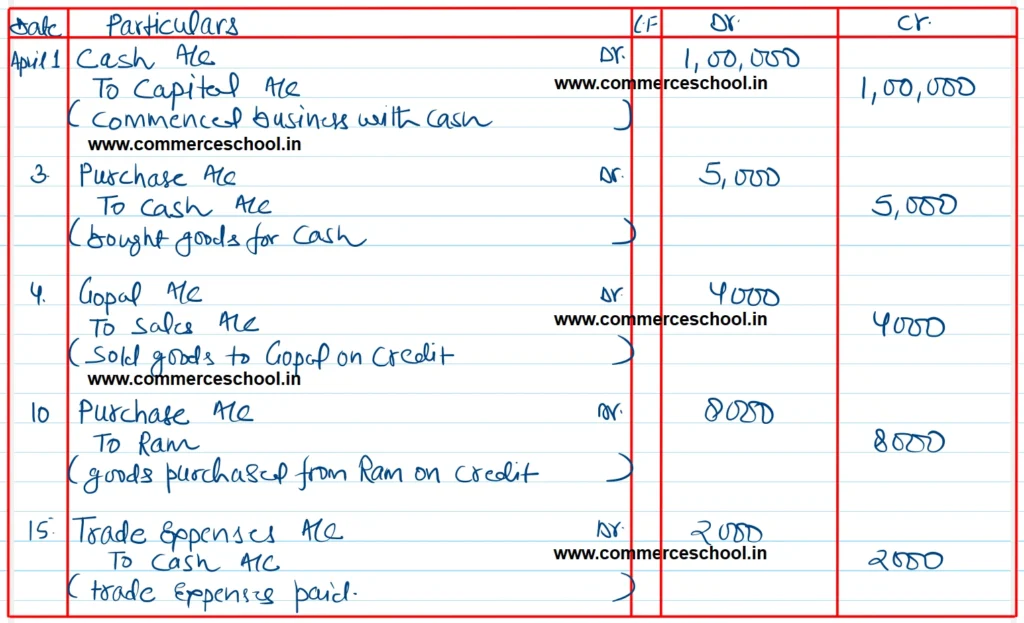 Date Particulars L.F Dr. Cr.
April 1 Cash A/c Dr. 1,00,000
www.commerceschool.in
To Capital A/c 1,00,000
( Commenced business with cash )
www.commerceschool.in
3. Purchase A/c Dr. 5,000
To Cash A/c 5,000
( bought goods for cash )
4. Gopal A/c Dr. 4000
To Sales A/c www.commerceschool.in 4000
( Sold goods to Gopal on credit )
www.commerceschool.in
10 Purchase A/c Dr. 8000
To Ram 8000
( goods purchased from Ram on credit )
15. Trade Expenses A/c Dr. 2000
www.commerceschool.in
To Cash A/c 2000
( trade Expenses paid. )